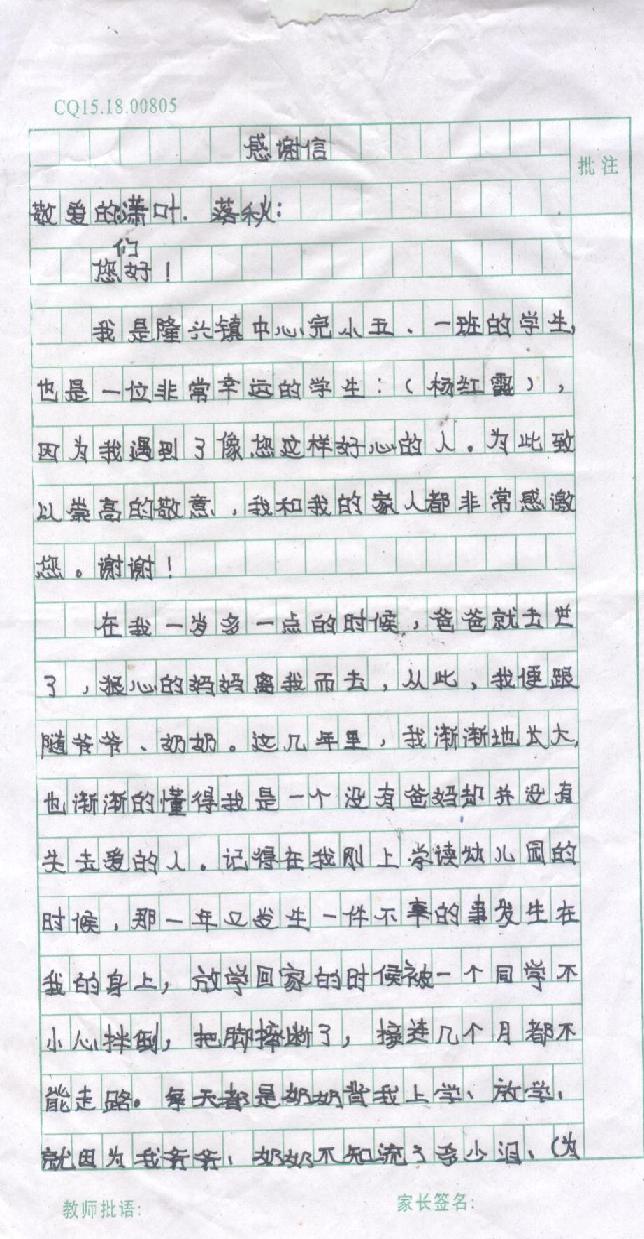 CQ15.18.00805
感谢信
批注
敬爱的潇叶．落秋：
们
您好！
我是隆兴镇中心完小五．一班的学生，
也是一位非常幸运的学生：（杨红露），
因为我遇到了像您这样好心的人。为此致
以崇高的敬意，我和我的家人都非常感激
您。谢谢！
在我一岁多一点的时候，爸爸就去世
了，狠心的妈妈离我而去，从此，我便跟
随爷爷、奶奶。这几年里，我渐渐地长大，
也渐渐的懂得我是一个没有爸妈却并没有
失去爱的人。记得在我刚上学读幼儿园的
时候，那一年又发生一件不幸的事发生在
我的身上，放学回家的时候被一个同学不
小心拌倒，把脚摔断了，接连几个月都不
能走路。每天都是奶奶背我上学、放学，
就因为我爷爷、奶奶不知流了多少泪、（为
教师批语：
家长签名：